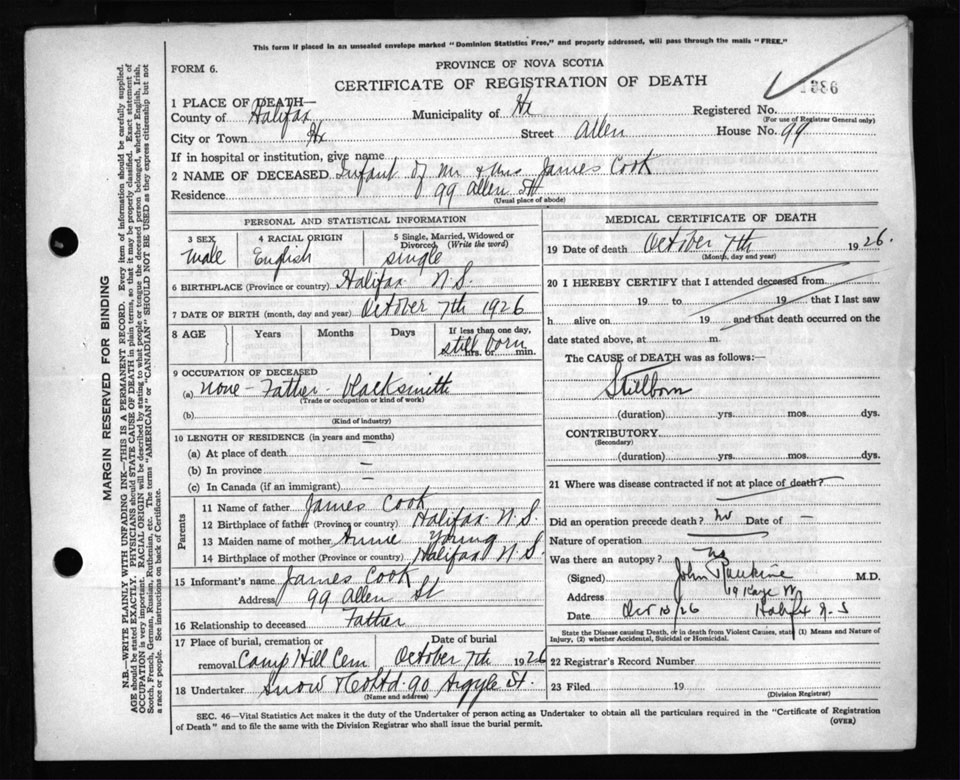 This form if placed in an unsealed envelope marked "Dominion Statistics Free," and properly addressed, will pass through the mails "FREE."
PROVINCE OF NOVA SCOTIA
FORM 6.
CERTIFICATE OF REGISTRATION OF DEATH
1 PLACE OF DEATH—
County of Halifax Municipality of Hx Registered No.
(For use of Registrar General only)
City or Town Hx Street Allen House No. 99
If in hospital or institution, give name
2 NAME OF DECEASED Infant of Mr & Mrs James Cook
Residence 99 Allen St
(Usual place of abode)
PERSONAL AND STATISTICAL INFORMATION
3 SEX 4 RACIAL ORIGIN 5 Single, Married, Widowed or Divorced (Write the word)
Male English single
6 BIRTHPLACE (Province or country) Halifax N.S.
7 DATE OF BIRTH (month, day and year) October 7th 1926
8 AGE Years Months Days If less than one day,
still born hrs. or min.
9 OCCUPATION OF DECEASED
(a) none - Father - blacksmith
(Trade or occupation or kind of work)
(b)
(Kind of industry)
10 LENGTH OF RESIDENCE (in years and months)
(a) At place of death
(b) In province —
(c) In Canada (if an immigrant) —
Parents
11 Name of father James Cook
12 Birthplace of father (Province or country) Halifax N.S.
13 Maiden name of mother Annie Young
14 Birthplace of mother (Province or country) Halifax N.S
15 Informant's name James Cook
Address 99 Allen St
16 Relationship to deceased Father
17 Place of burial, cremation or Date of burial
removal Camp Hill Cem October 7th 1926
18 Undertaker Snow & Co Ltd. 90 Argyle St.
(Name and address)
MEDICAL CERTIFICATE OF DEATH
19 Date of death October 7th 1926.
(Month, day and year)
20 I HEREBY CERTIFY that I attended deceased from
19 to 19 that I last saw
h alive on 19 and that death occurred on the
date stated above, at m.
The CAUSE of DEATH was as follows:—
Stillborn
(duration) yrs. mos. dys.
CONTRIBUTORY
(Secondary)
(duration) yrs. mos. dys.
21 Where was disease contracted if not at place of death?
Did an operation precede death? no Date of —
Nature of operation
Was there an autopsy? no
(Signed) John Rankine M.D.
Address
Date Oct 10/26 Halifax N.S
State the Disease causing Death, or in death from Violent Causes, state (1) Means and Nature of
Injury, (2) whether Accidental, Suicidal or Homicidal.
22 Registrar's Record Number
23 Filed 19
(Division Registrar)
SEC. 46—Vital Statistics Act makes it the duty of the Undertaker or person acting as Undertaker to obtain all the particulars required in the "Certificate of Registration
of Death" and to file the same with the Division Registrar who shall issue the burial permit. (OVER)
MARGIN RESERVED FOR BINDING
N.B.—WRITE PLAINLY WITH UNFADING INK—THIS IS A PERMANENT RECORD. Every item of information should be carefully supplied.
AGE should be stated EXACTLY. PHYSICIANS should STATE CAUSE OF DEATH in plain terms, so that it may be properly classified. Exact statement of
OCCUPATION is very important. RACIAL ORIGIN will be described by stating to what people or tongue the deceased person belonged, whether English, Irish,
Scotch, French, German, Russian, Ruthenian, etc. The terms "AMERICAN" or "CANADIAN" SHOULD NOT BE USED as they express citizenship but not
a race or people. See instructions on back of Certificate.